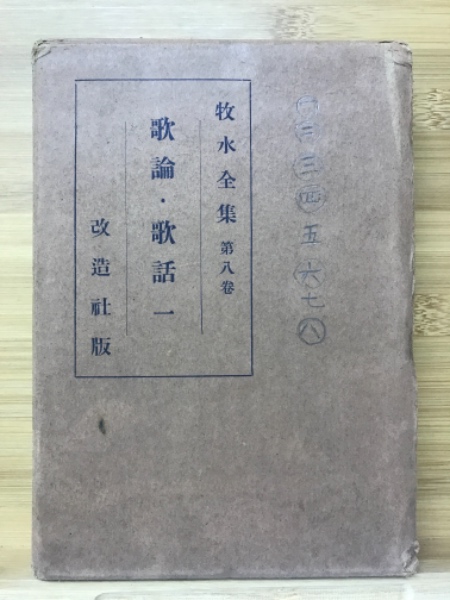 一二三四五六七八
牧水全集 第八卷
歌論・歌話一
改造社版